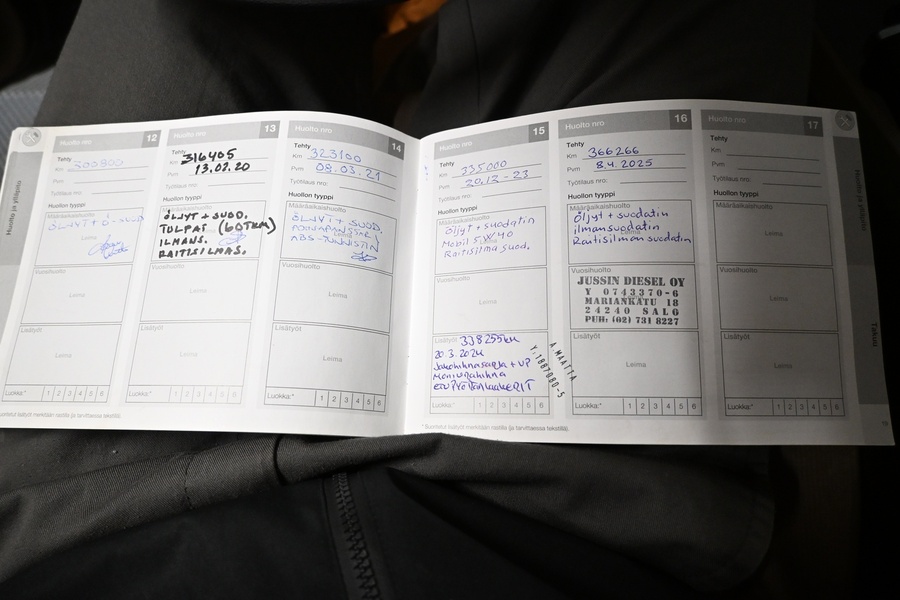 Huolto ja ylläpito
Huolto nro 12
Tehty
Km 300800
Pvm
Työtilaus nro:
Huollon tyyppi
Määräaikaishuolto
Leima
Vuosihuolto
Leima
Lisätyöt
Leima
Luokka:*
1 2 3 4 5 6
Huolto nro 13
Tehty
Km 316405
Pvm 13.02.20
Työtilaus nro:
Huollon tyyppi
ÖLJYT + SUOD.
TULPAT (60TKM)
ILMANS.
RAITISILMAS.
Vuosihuolto
Leima
Lisätyöt
Leima
Luokka:*
1 2 3 4 5 6
Huolto nro 14
Tehty
Km 323100
Pvm 08.03.21
Työtilaus nro:
Huollon tyyppi
Määräaikaishuolto
ÖLJYT + SUOD.
ABS-TUNNISTIN
Vuosihuolto
Leima
Lisätyöt
Leima
Luokka:*
1 2 3 4 5 6
Huolto nro 15
Tehty
Km 335000
Pvm 20.12-23
Työtilaus nro:
Huollon tyyppi
Määräaikaishuolto
Öljyt + suodatin
Mobil 5W40
Raitisilma suod.
Vuosihuolto
Leima
Lisätyöt 338255km
20.3.2024
Jakohihnasarja + VP
Moniurahihna
A MAATTA
Y. 1867080-5
Luokka:*
1 2 3 4 5 6
Huolto nro 16
Tehty
Km 366266
Pvm 8.4.2025
Työtilaus nro:
Huollon tyyppi
Määräaikaishuolto
Öljyt + suodatin
ilmansuodatin
Raitisilman suodatin
Vuosihuolto
JUSSIN DIESEL OY
Y 0743370-6
MARIANKATU 18
24240 SALO
PUH: (02) 731 8227
Lisätyöt
Leima
Luokka:*
1 2 3 4 5 6
Huolto nro 17
Tehty
Km
Pvm
Työtilaus nro:
Huollon tyyppi
Määräaikaishuolto
Leima
Vuosihuolto
Leima
Lisätyöt
Leima
Luokka:*
1 2 3 4 5 6
Huolto ja ylläpito
* Suoritetut lisätyöt merkitään rastilla (ja tarvittaessa tekstillä).
* Suoritetut lisätyöt merkitään rastilla (ja tarvittaessa tekstillä).